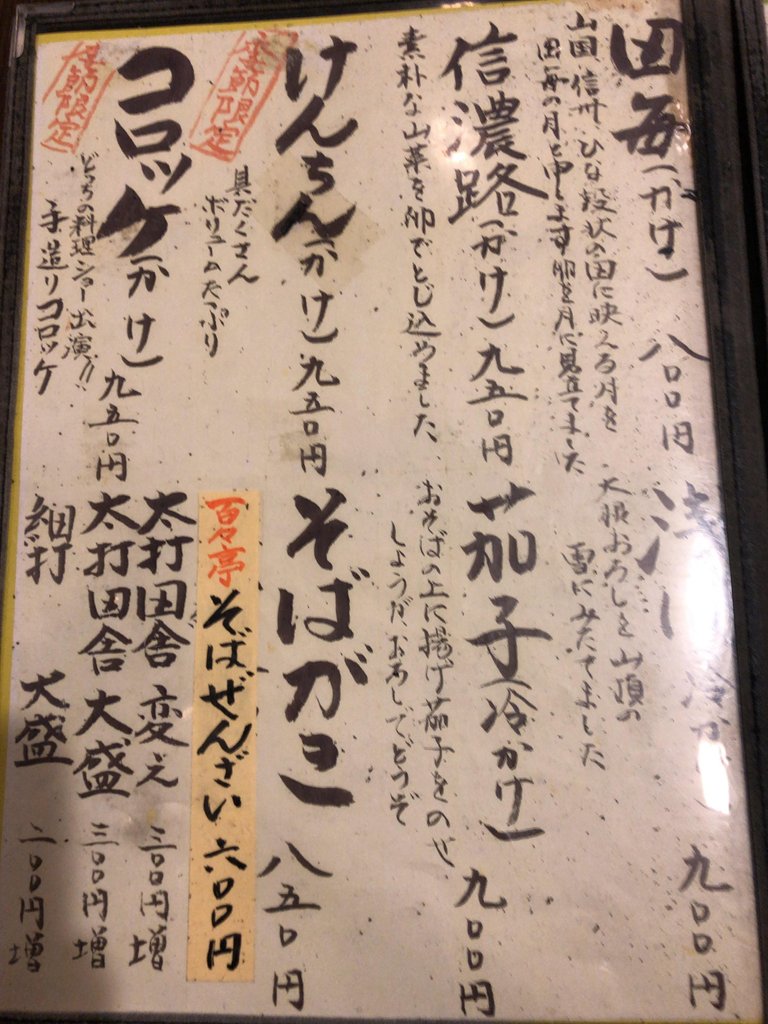 田毎(かけ) 八〇〇円
山国、信州、ひな段状の田に映える月を
田毎の月と申します 卵を月に見立てました
信濃路(かけ) 九五〇円
素朴な山菜を卵でとじ込めました
けんちん(かけ) 九五〇円
限定
具だくさん
ボリュームたっぷり
コロッケ(かけ) 九五〇円
限定
どっちの料理ショー出演!!
手造りコロッケ
浅 冷か 九〇〇円
大根おろしを山頂の
雪にみたてました
茄子(冷かけ) 九〇〇円
おそばの上に揚げ茄子をのせ
しょうがおろしでどうぞ
そばがき 八五〇円
百々亭 そばぜんざい 六〇〇円
太打田舎 変え 三〇〇円増
太打田舎 大盛 三〇〇円増
細打 大盛 二〇〇円増